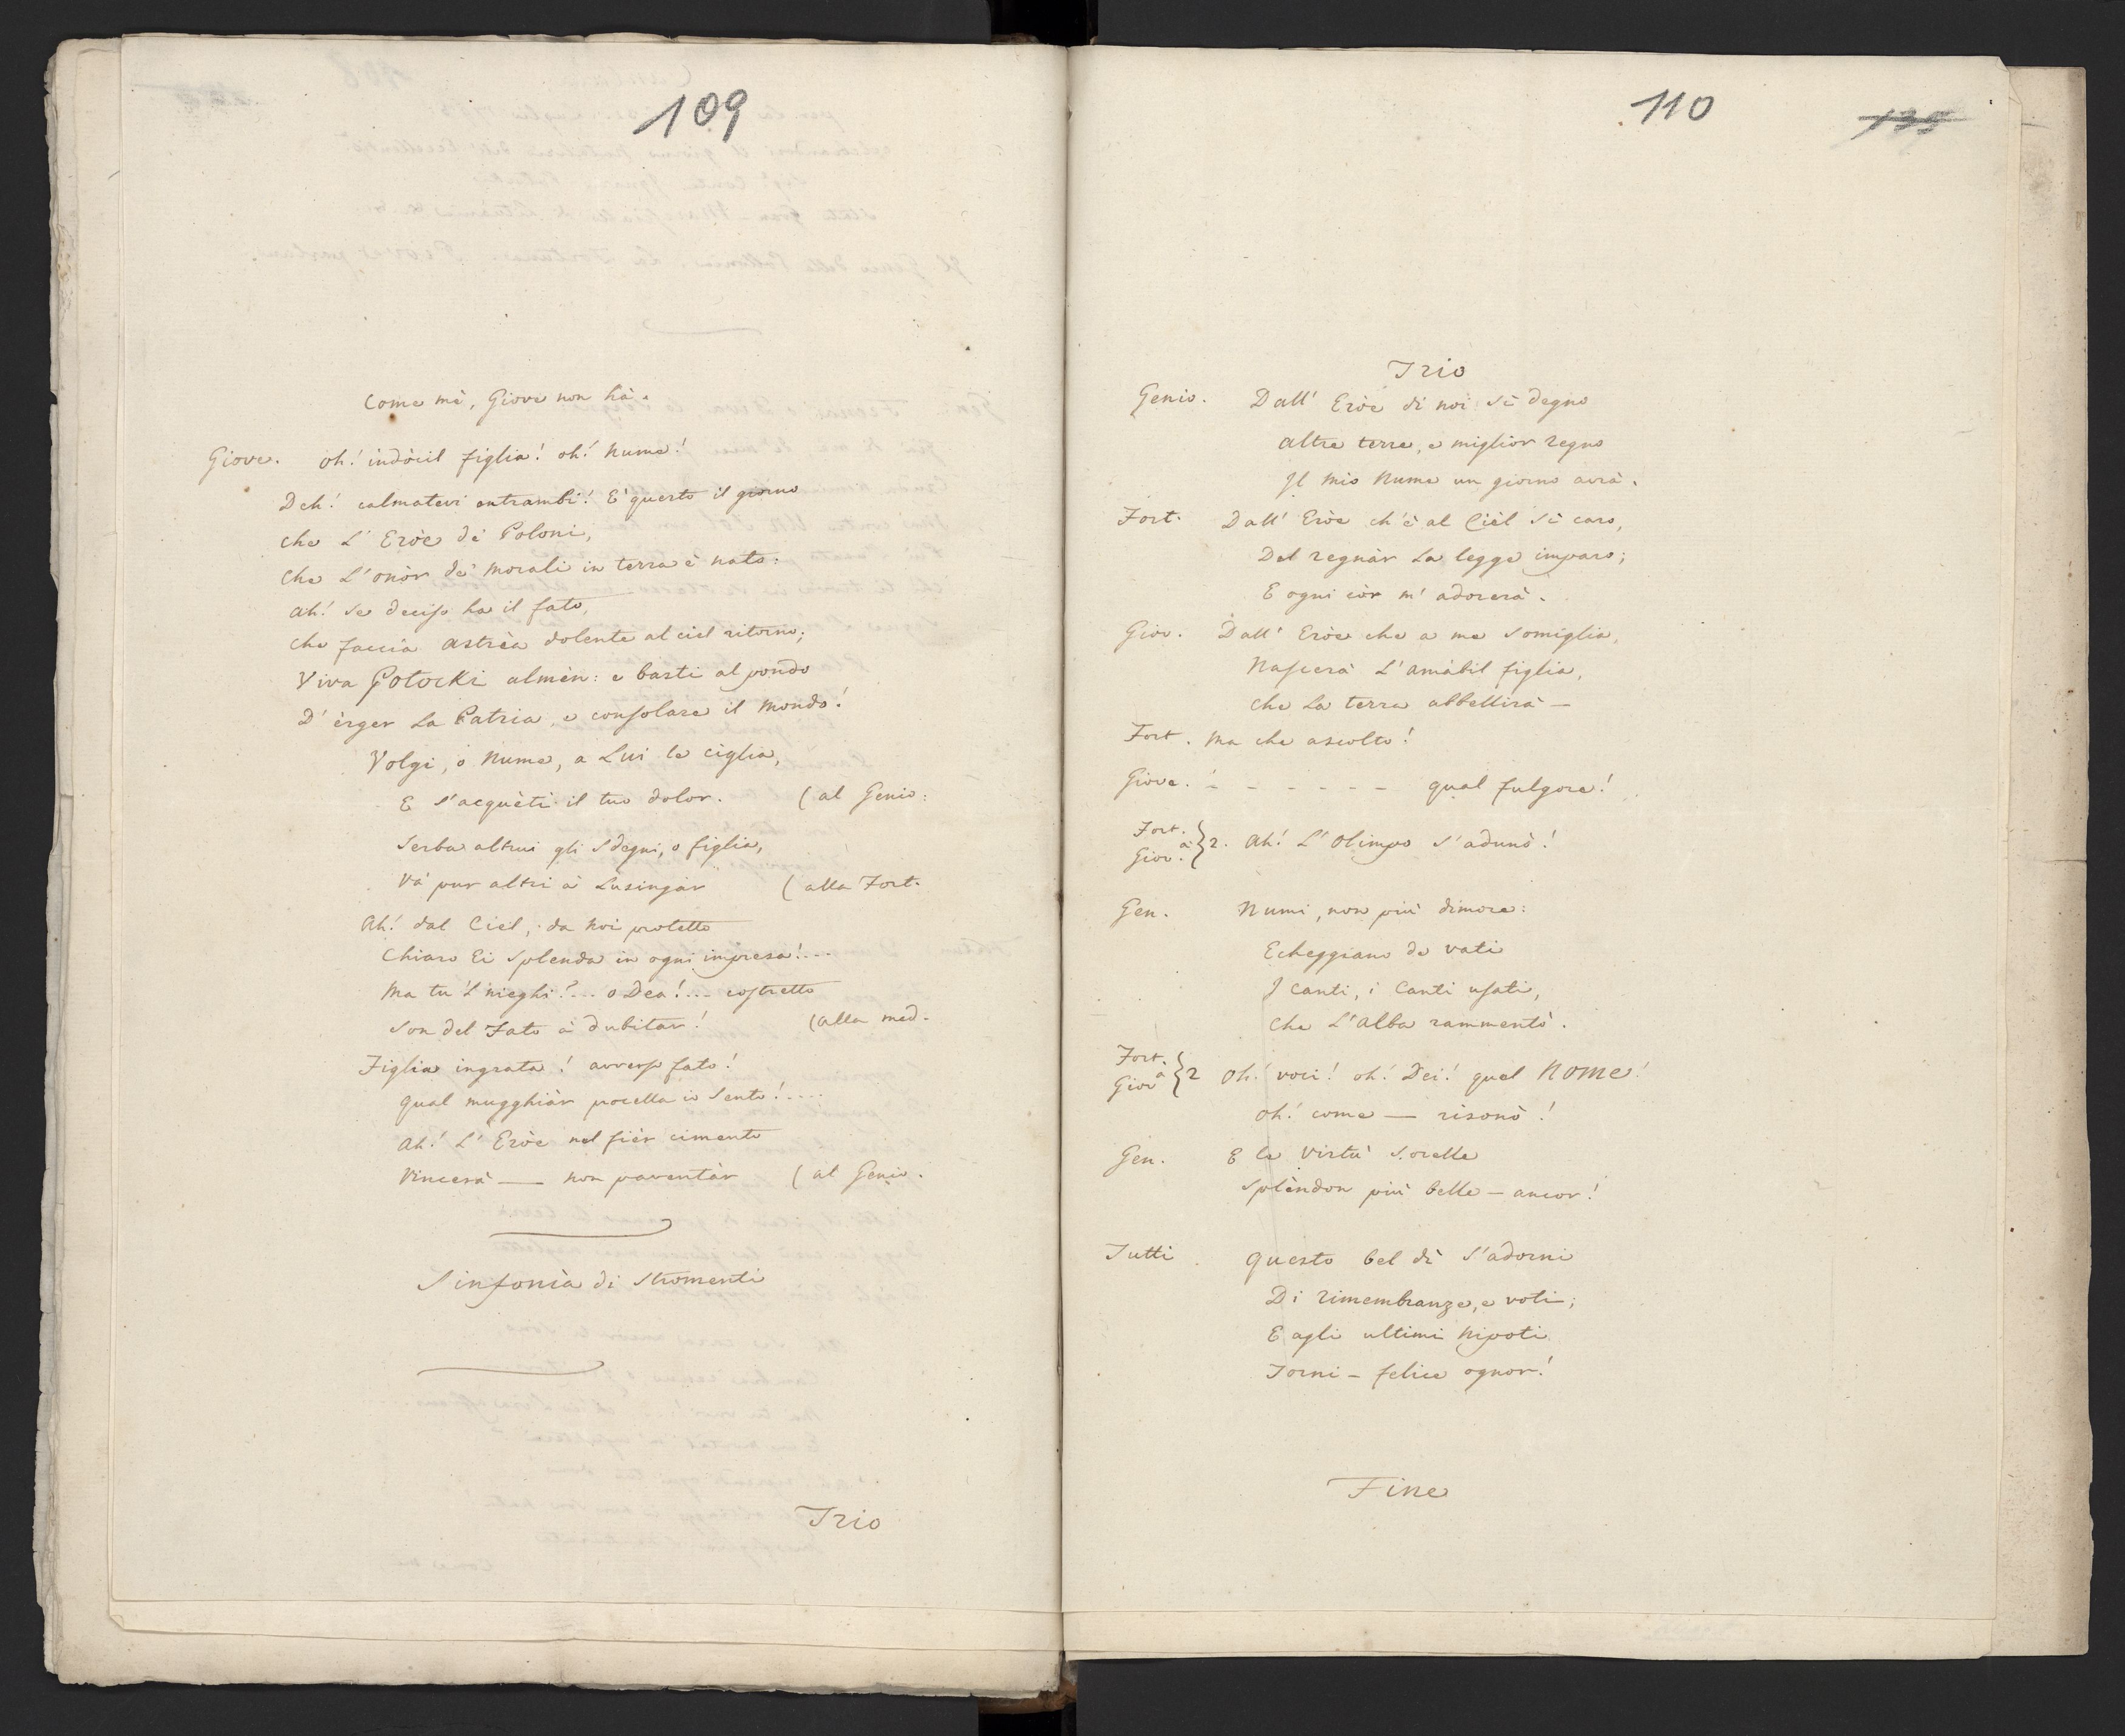 109
Come mè, Giove non hà.
Giove. oh! indòcil figlia! oh! Nume!
Deh! calmatevi entrambi! E' questo il giorno
che L' Eròe de' Poloni,
Che L'onòr de' Morali in terra è nato:
ah! se deciso ha il fato,
che faccia Astrèa dolente al ciel ritorno;
Viva Potocki almèn: e basti al pondo
D' èrger La Patria, e consolare il Mondo!
Volgi, o Nume, a Lui le ciglia,
E s'acquèti il tuo dolor. (al Genio:
Serba altrui gli sdegni, o figlia,
Và pur altri à Lusingàr (alla Fort.
Ah! dal Ciel, da Noi protetto
Chiaro Ei splenda in ogni impresa!...
Ma tu 'l nieghi?... o Dea!... costretto
Son del Fato à dubitar! (alla med.
Figlia ingrata! avverso fato!
qual mugghiàr procella io sento!....
ah! L' Eròe nel fièr cimento
Vincerà — non paventàr (al Genio.
Sinfonìa di Stromenti
Trio
110
135
Trio
Genio. Dall' Eròe di noi sì degno
altre terre, e miglior regno
Il mio Nume un giorno avrà.
Fort. Dall' Eròe ch'è al Cièl sì caro,
Del regnàr La legge imparo;
E ogni còr m' adorerà.
Giov. Dall' Eròe che a me somiglia,
Nascerà L'amàbil figlia,
che La terra abbellirà —
Fort. Ma che ascolto!
Giove. - - - - - - - qual fulgore!
Fort. Giov. à 2. Ah! L'Olimpo s'adunò!
Gen. Numi, non più dimore:
Echeggiano de vati
I Canti, i Canti usati,
Che L'alba rammentò.
Fort. Giov à 2 Oh! voci! oh! Dei! quel NOME!
oh! come — risonò!
Gen. E le Virtù Sorelle
Splèndon più belle — ancor!
Tutti. questo bel dì s'adorni
Di rimembranze, e voti;
E agli ultimi Nipoti
Torni — felice ognor!
Fine